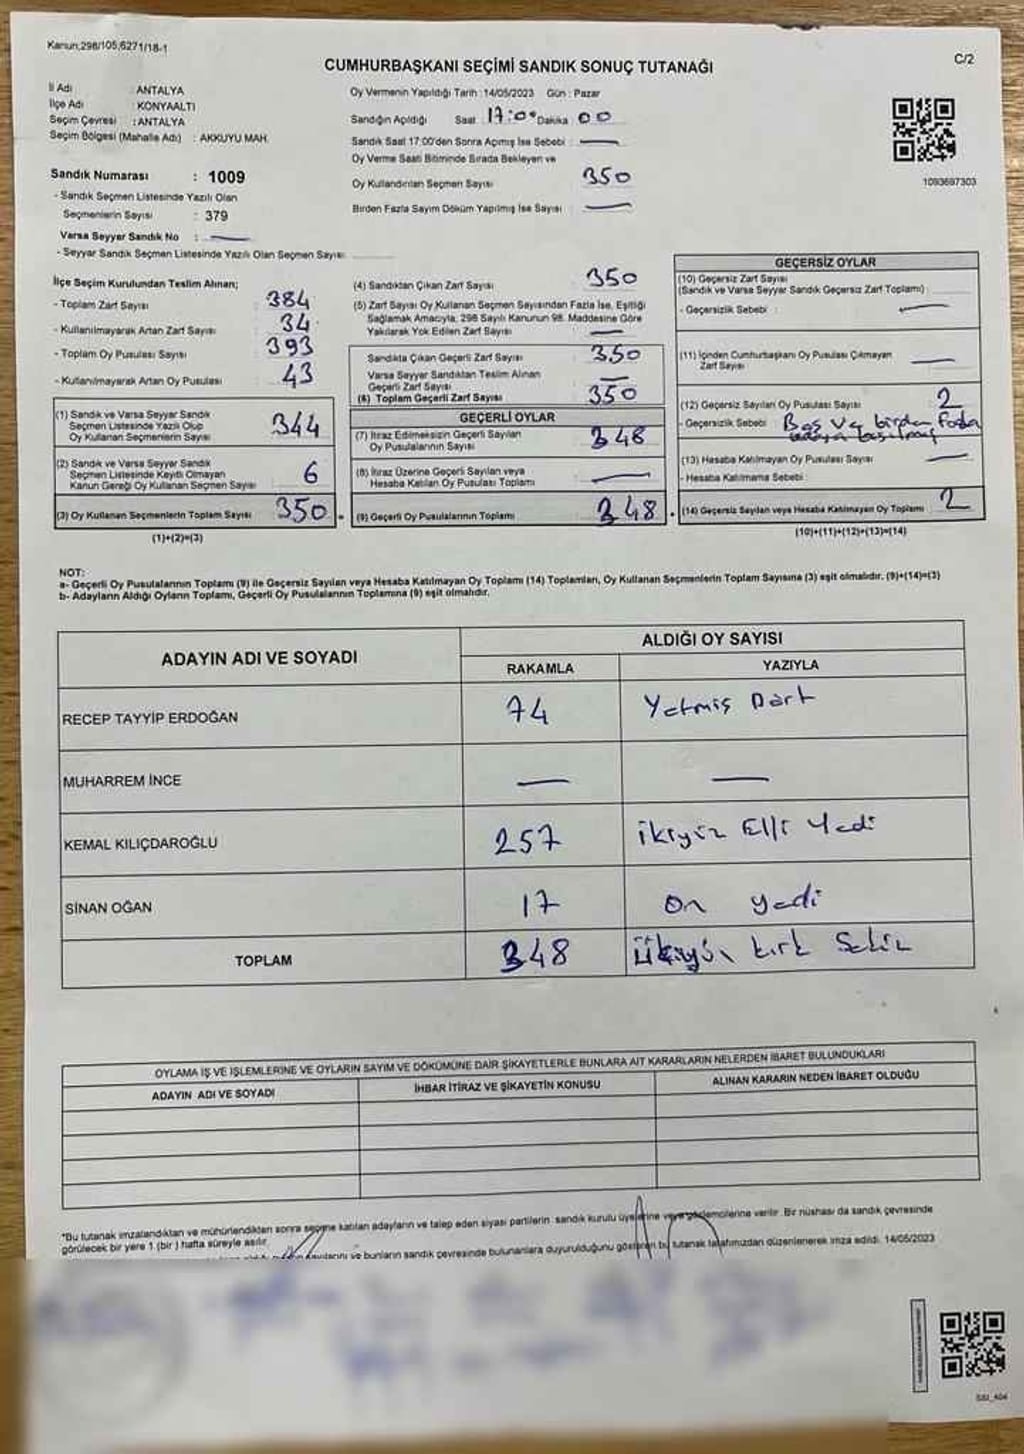 Kanun;298/105,6271/18-1
CUMHURBAŞKANI SEÇİMİ SANDIK SONUÇ TUTANAĞI
C/2
İl Adı : ANTALYA
İlçe Adı : KONYAALTI
Seçim Çevresi : ANTALYA
Seçim Bölgesi (Mahalle Adı) : AKKUYU MAH.
Sandık Numarası : 1009
- Sandık Seçmen Listesinde Yazılı Olan
Seçmenlerin Sayısı : 379
Varsa Seyyar Sandık No : —
- Seyyar Sandık Seçmen Listesinde Yazılı Olan Seçmen Sayısı:
Oy Vermenin Yapıldığı Tarih : 14/05/2023 Gün : Pazar
Sandığın Açıldığı Saat 17:00 Dakika : 00
Sandık Saat 17:00'den Sonra Açımış İse Sebebi : —
Oy Verme Saati Bitiminde Sırada Bekleyen ve
Oy Kullandırılan Seçmen Sayısı 350
Birden Fazla Sayım Döküm Yapılmış İse Sayısı : —
1093697303
İlçe Seçim Kurulundan Teslim Alınan;
- Toplam Zarf Sayısı : 384
- Kullanılmayarak Artan Zarf Sayısı : 34
- Toplam Oy Pusulası Sayısı : 393
- Kullanılmayarak Artan Oy Pusulası : 43
(1) Sandık ve Varsa Seyyar Sandık
Seçmen Listesinde Yazılı Olup
Oy Kullanan Seçmenlerin Sayısı 344
(2) Sandık ve Varsa Seyyar Sandık
Seçmen Listesinde Kayıtlı Olmayan
Kanun Gereği Oy Kullanan Seçmen Sayısı 6
(3) Oy Kullanan Seçmenlerin Toplam Sayısı 350
(1)+(2)=(3)
(4) Sandıktan Çıkan Zarf Sayısı : 350
(5) Zarf Sayısı Oy Kullanan Seçmen Sayısından Fazla İse, Eşitliği
Sağlamak Amacıyla, 298 Sayılı Kanunun 98. Maddesine Göre
Yakılarak Yok Edilen Zarf Sayısı : —
Sandıkta Çıkan Geçerli Zarf Sayısı : 350
Varsa Seyyar Sandıktan Teslim Alınan
Geçerli Zarf Sayısı : —
(6) Toplam Geçerli Zarf Sayısı : 350
GEÇERLİ OYLAR
(7) İtiraz Edilmeksizin Geçerli Sayılan
Oy Pusulalarının Sayısı : 348
(8) İtiraz Üzerine Geçerli Sayılan veya
Hesaba Katılan Oy Pusulası Toplamı : —
(9) Geçerli Oy Pusulalarının Toplamı 348
GEÇERSİZ OYLAR
(10) Geçersiz Zarf Sayısı
(Sandık ve Varsa Seyyar Sandık Geçersiz Zarf Toplamı) :
- Geçersizlik Sebebi : —
(11) İçinden Cumhurbaşkanı Oy Pusulası Çıkmayan
Zarf Sayısı : —
(12) Geçersiz Sayılan Oy Pusulası Sayısı : 2
- Geçersizlik Sebebi : Boş Ve birden fazla
adaya basılmış
(13) Hesaba Katılmayan Oy Pusulası Sayısı : —
- Hesaba Katılmama Sebebi :
(14) Geçersiz Sayılan veya Hesaba Katılmayan Oy Toplamı 2
(10)+(11)+(12)+(13)=(14)
NOT:
a- Geçerli Oy Pusulalarının Toplamı (9) ile Geçersiz Sayılan veya Hesaba Katılmayan Oy Toplamı (14) Toplamları, Oy Kullanan Seçmenlerin Toplam Sayısına (3) eşit olmalıdır. (9)+(14)=(3)
b- Adayların Aldığı Oyların Toplamı, Geçerli Oy Pusulalarının Toplamına (9) eşit olmalıdır.
ADAYIN ADI VE SOYADI
ALDIĞI OY SAYISI
RAKAMLA YAZIYLA
RECEP TAYYİP ERDOĞAN 74 Yetmiş Dört
MUHARREM İNCE — —
KEMAL KILIÇDAROĞLU 257 ikiyüz Elli Yedi
SİNAN OĞAN 17 On yedi
TOPLAM 348 kırk Sekiz
OYLAMA İŞ VE İŞLEMLERİNE VE OYLARIN SAYIM VE DÖKÜMÜNE DAİR ŞİKAYETLERLE BUNLARA AİT KARARLARIN NELERDEN İBARET BULUNDUKLARI
ADAYIN ADI VE SOYADI İHBAR İTİRAZ VE ŞİKAYETİN KONUSU ALINAN KARARIN NEDEN İBARET OLDUĞU
*Bu tutanak imzalandıktan ve mühürlendikten sonra seçime katılan adayların ve talep eden siyasi partilerin sandık kurulu üyelerine veya gözlemcilerine verilir. Bir nüshası da sandık çevresinde
görülecek bir yere 1 (bir) hafta süreyle asılır.
ve bunların sandık çevresinde bulunanlara duyurulduğunu gösteren bu tutanak tarafımızdan düzenlenerek imza edildi. 14/05/2023